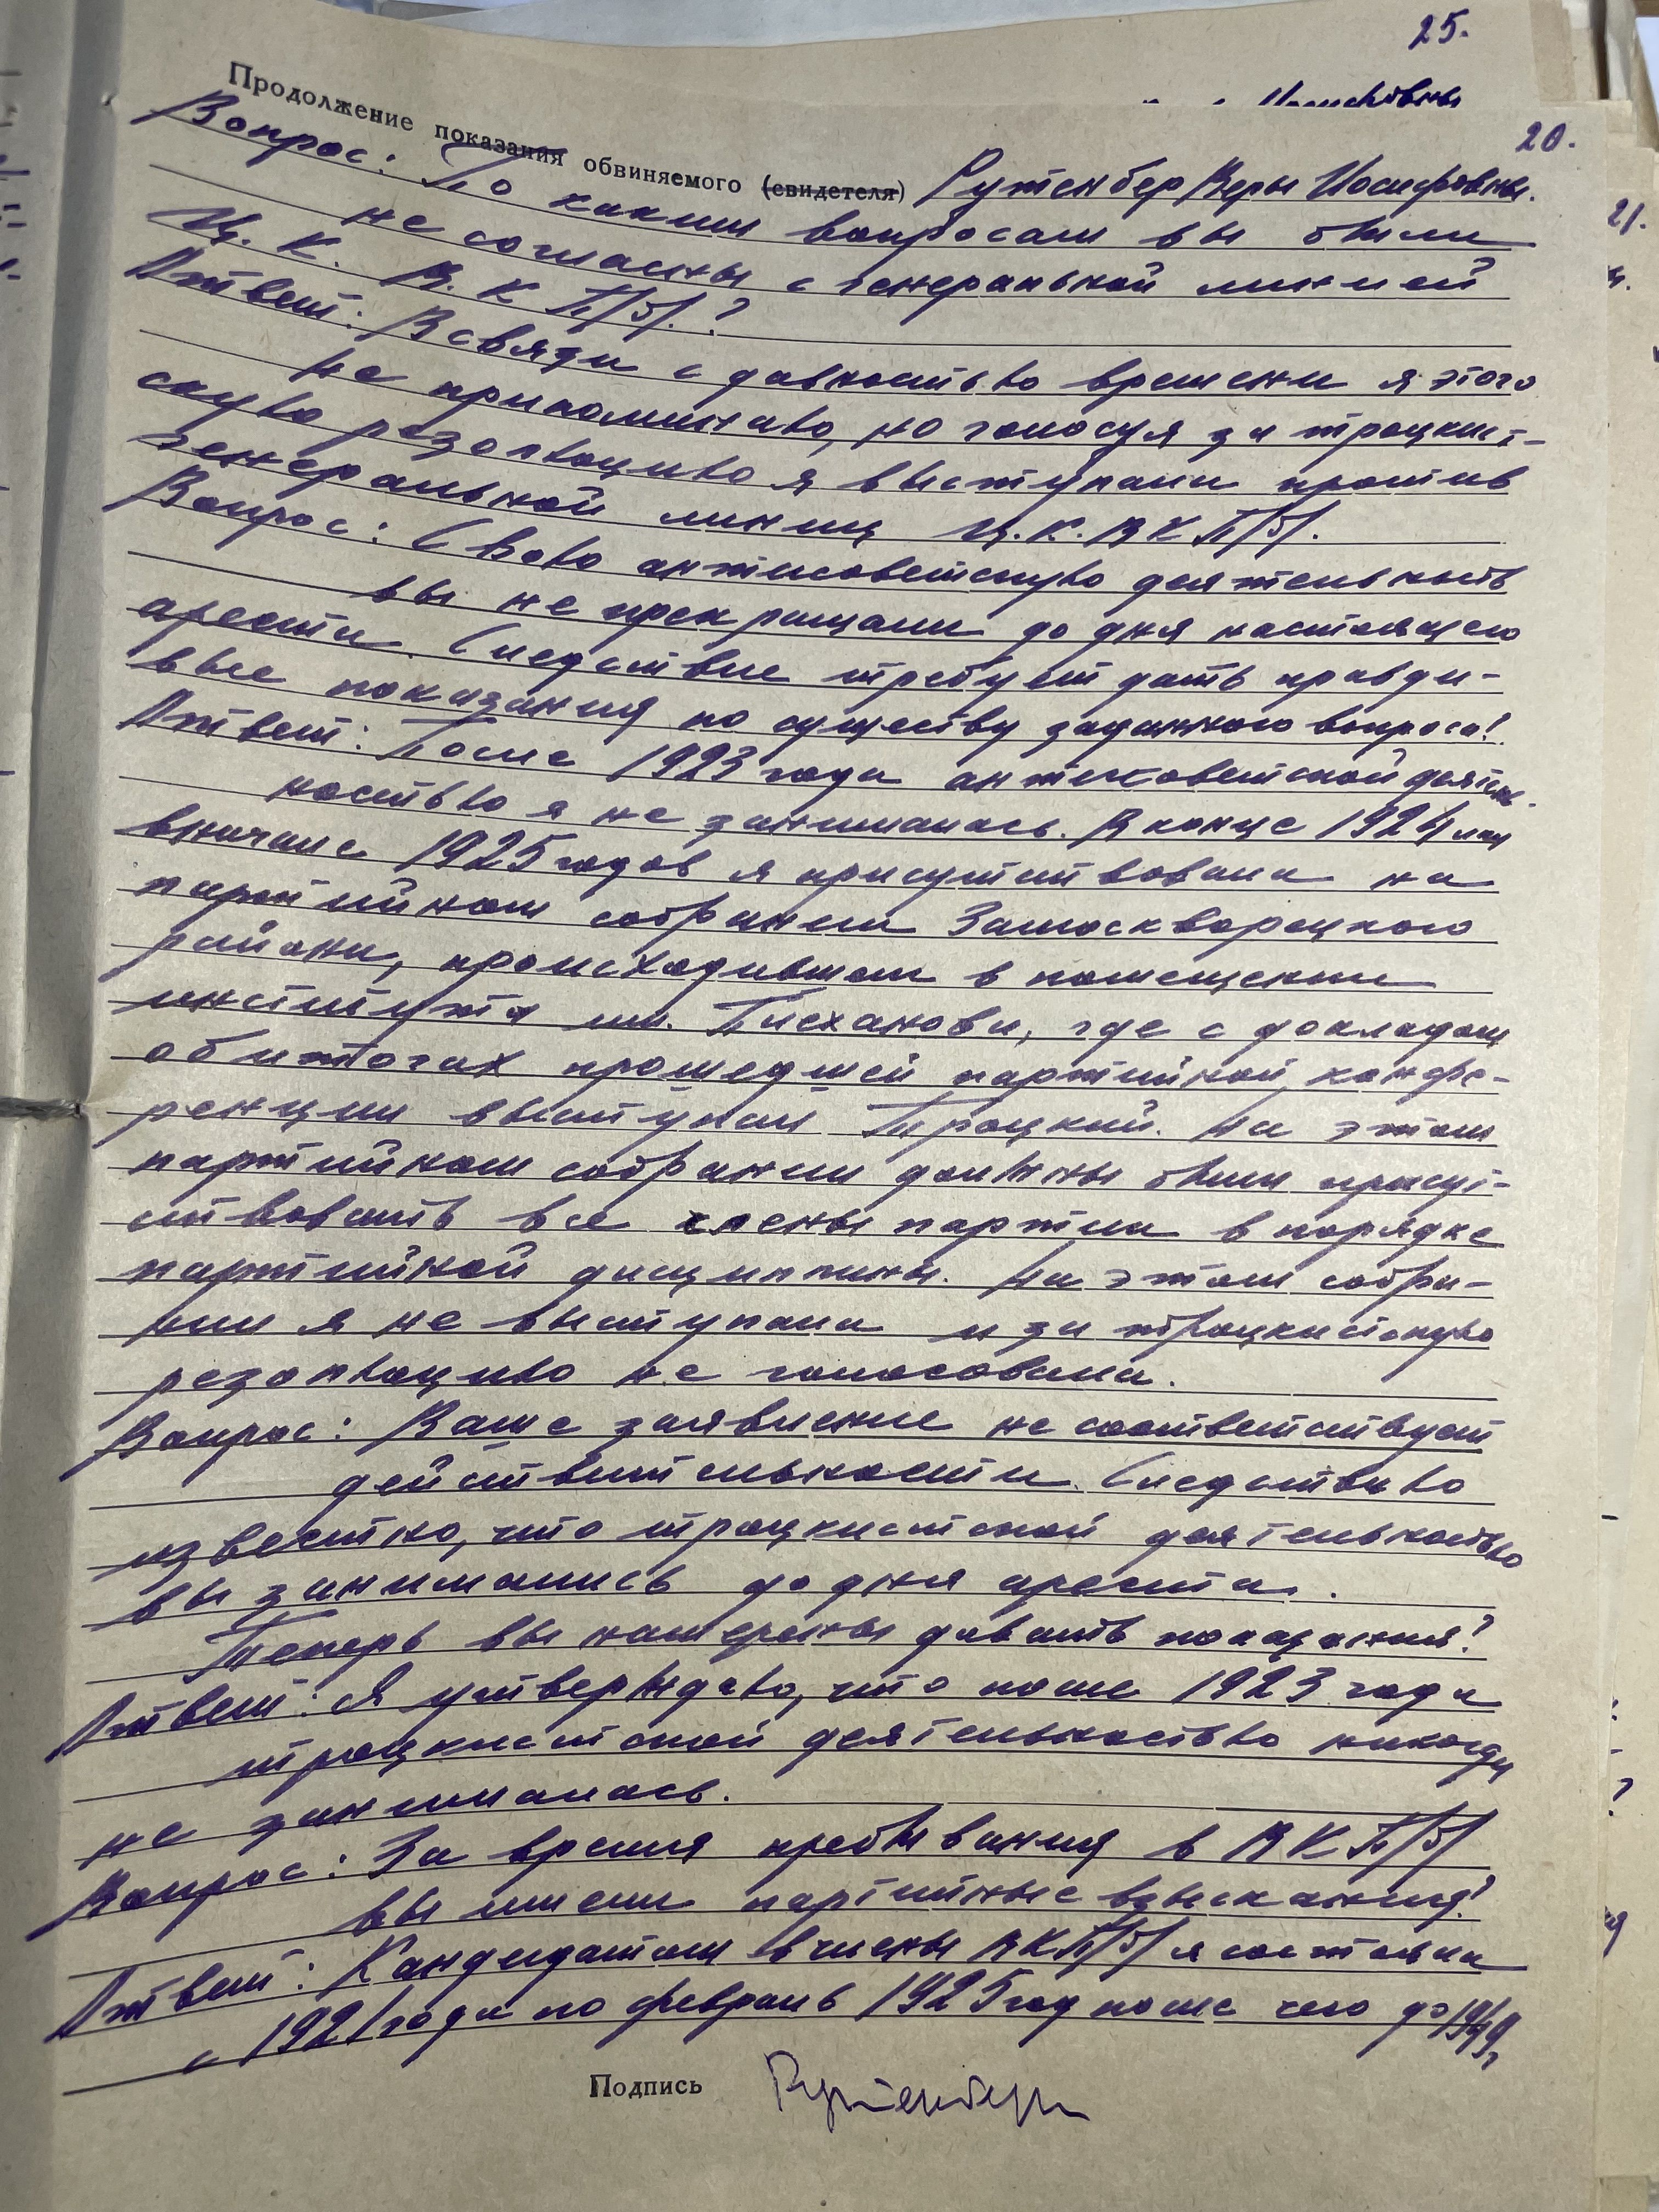 25.
20.
Продолжение показания обвиняемого (свидетеля) Рутенбер Веры Иосифовны.
Вопрос: По каким вопросам вы были
не согласны с генеральной линией
Ц. К. В. К П/б/.?
Ответ: В связи с давностью времени я этого
не припоминаю, но голосуя за троцкист-
скую резолюцию я выступала против
генеральной линии Ц.К. ВКП/б/.
Вопрос: Свою антисоветскую деятельность
вы не прекращали до дня настоящего
ареста. Следствие требует дать правди-
вые показания по существу заданного вопроса!
Ответ: После 1923 года антисоветской деятель-
ностью я не занималась. В конце 1924 или
вначале 1925 годов я присутствовала на
партийном собрании Замоскворецкого
района, происходившем в помещении
института им. Плеханова, где с докладом
об итогах прошедшей партийной конфе-
ренции выступал Троцкий. На этом
партийном собрании должны были присут-
ствовать все члены партии в порядке
партийной дисциплины. На этом собра-
нии я не выступала и за троцкистскую
резолюцию не голосовала.
Вопрос: Ваше заявление не соответствует
действительности. Следствию
известно, что троцкистской деятельностью
вы занимались до дня ареста.
Теперь вы намерены давать показания?
Ответ: Я утверждаю, что после 1923 года
троцкистской деятельностью никогда
не занималась.
Вопрос: За время пребывания в ВКП/б/
вы имели партийные взыскания?
Ответ: Кандидатом в члены ВКП/б/ я состояла
с 1921 года по февраль 1925 год после чего до 1949 г.
Подпись Рутенберг
21.